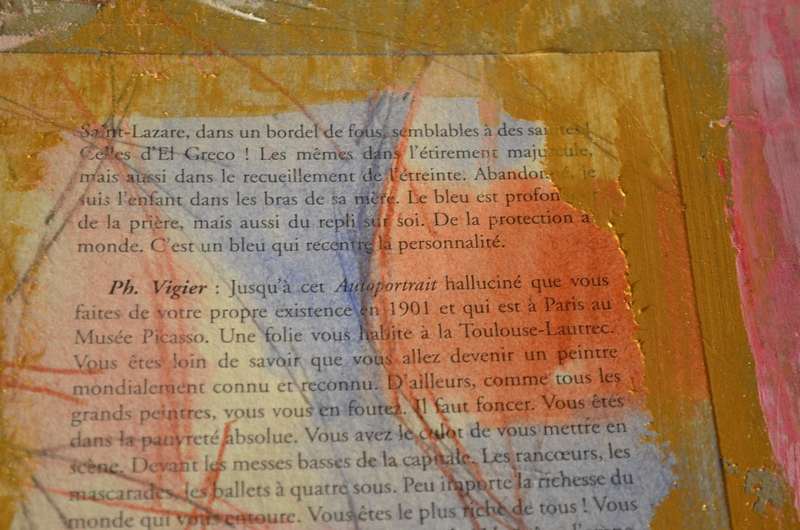 Saint-Lazare, dans un bordel de fous, semblables à des saintes !
Celles d'El Greco ! Les mêmes dans l'étirement majuscule,
mais aussi dans le recueillement de l'étreinte. Abandonné, je
suis l'enfant dans les bras de sa mère. Le bleu est profond
de la prière, mais aussi du repli sur soi. De la protection a
monde. C'est un bleu qui recentre la personnalité.
Ph. Vigier : Jusqu'à cet Autoportrait halluciné que vous
faites de votre propre existence en 1901 et qui est à Paris au
Musée Picasso. Une folie vous habite à la Toulouse-Lautrec.
Vous êtes loin de savoir que vous allez devenir un peintre
mondialement connu et reconnu. D'ailleurs, comme tous les
grands peintres, vous vous en foutez. Il faut foncer. Vous êtes
dans la pauvreté absolue. Vous avez le culot de vous mettre en
scène. Devant les messes basses de la capitale. Les rancœurs, les
mascarades, les ballets à quatre sous. Peu importe la richesse du
monde qui vous entoure. Vous êtes le plus riche de tous ! Vous